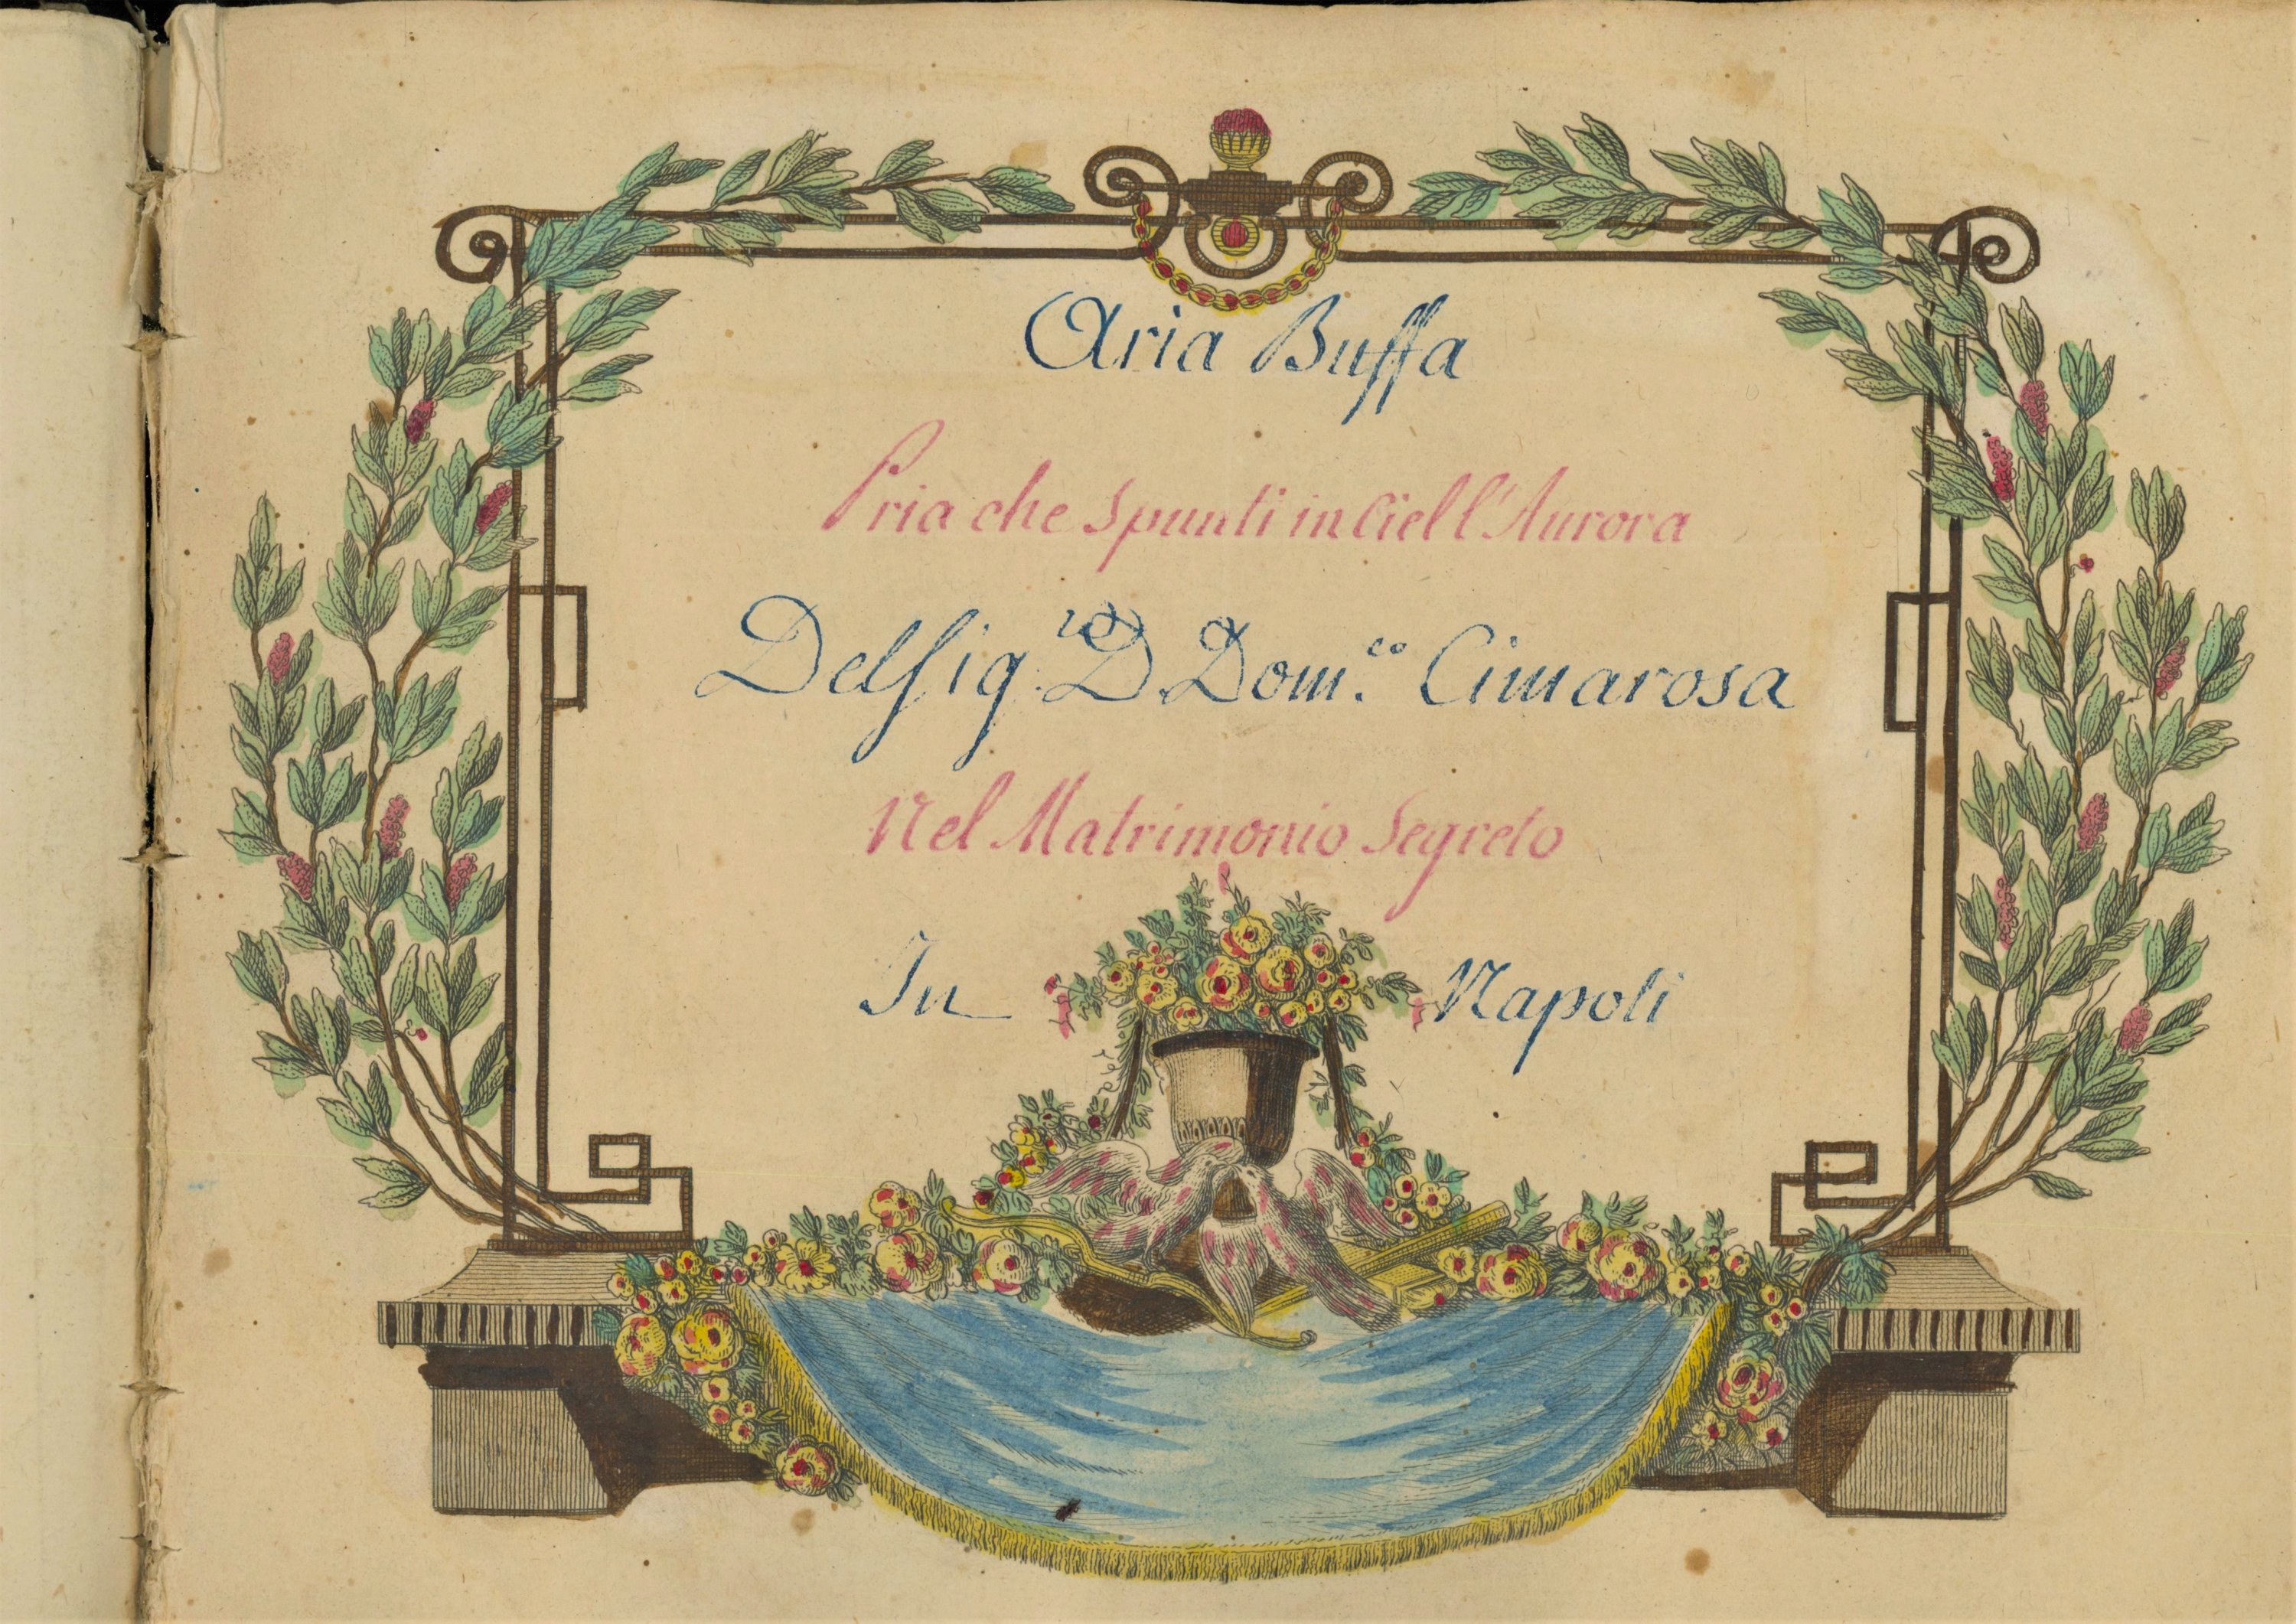 Aria Buffa
Pria che Spunti in Ciel l'Aurora
Del Sig.re D Dom.co Cimarosa
Nel Matrimonio Segreto
In Napoli